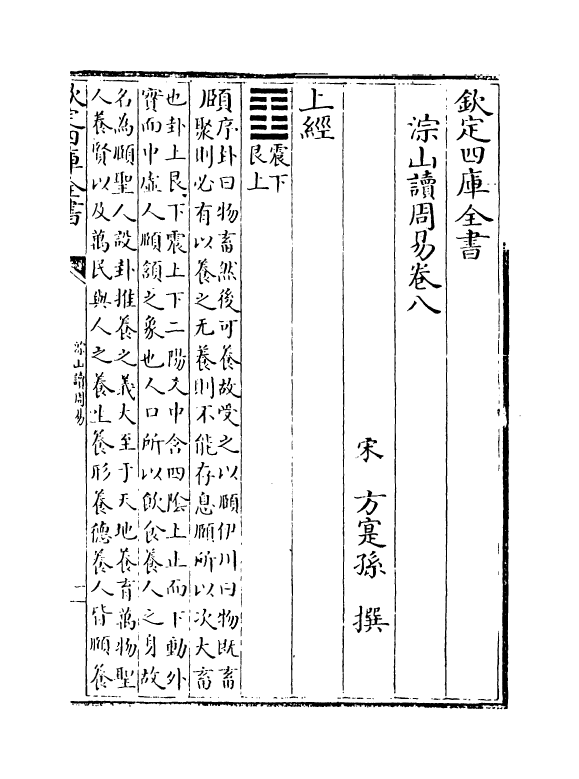 欽定四庫全書
淙山讀周易卷八
宋 方寔孫 撰
上經
震下
艮上
頤序卦曰物畜然後可養故受之以頤伊川曰物既畜
聚則必有以養之无養則不能存息頤所以次大畜
也卦上艮下震上下二陽爻中含四陰上止而下動外
實而中虚人頤頷之象也人口所以飲食養人之身故
名為頤聖人設卦推養之義大至于天地養育萬物聖
人養賢以及萬民與人之養生養形養德養人皆頤養
欽定四庫全書
淙山讀周易